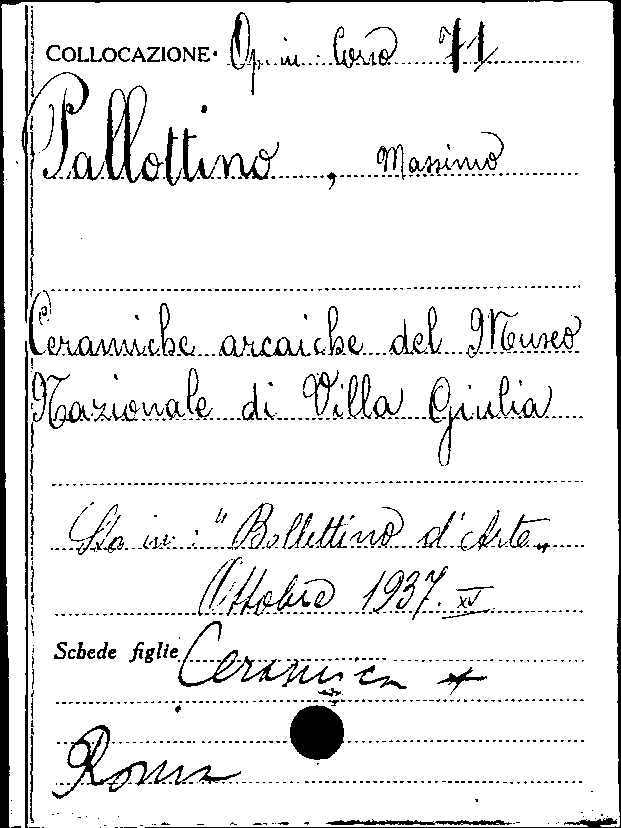 COLLOCAZIONE. Op. in Corso 71
Pallottino, Massimo
Ceramiche arcaiche del Museo
Nazionale di Villa Giulia
Sta in: "Bollettino d'Arte„
Ottobre 1937. XV
Schede figlie Ceramica +
Roma